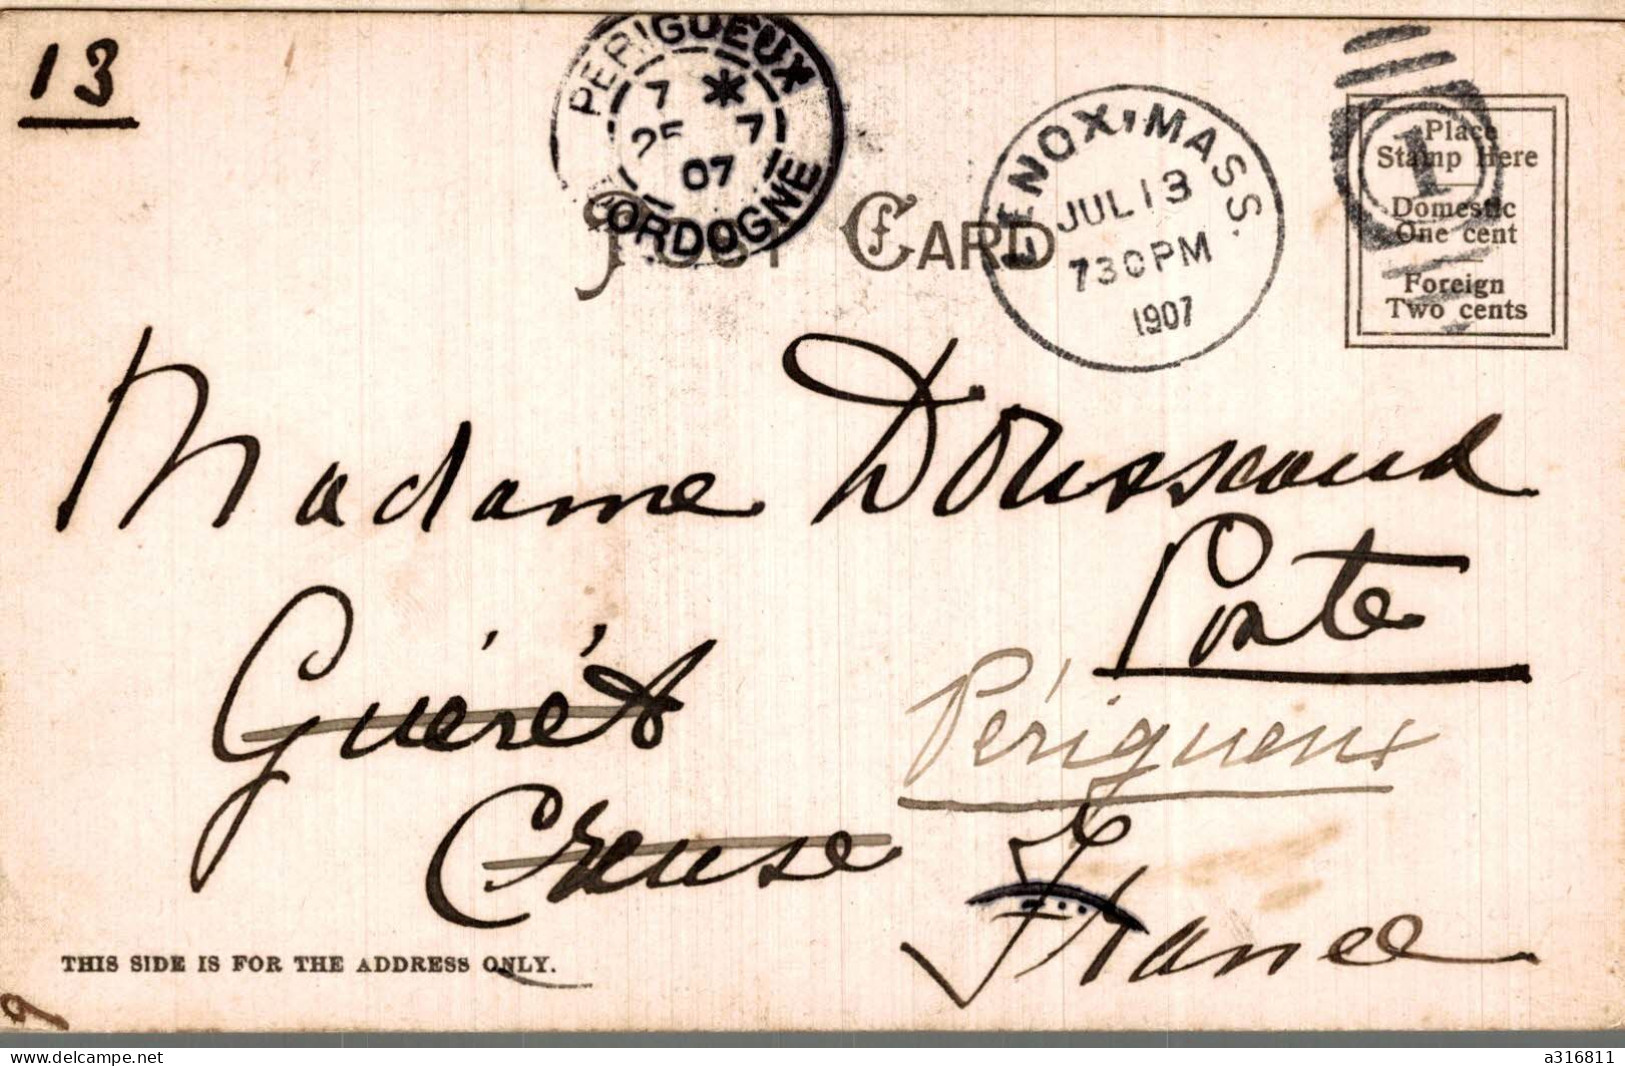 13
PÉRIGUEUX
7 * 
25 7
07
DORDOGNE
POST CARD
LENOX, MASS.
JUL 13
730 PM
1907
1
Place
Stamp Here
Domestic
One cent
Foreign
Two cents
Madame Doussaud
Poste
Guéret
Périgueux
Creuse
France
THIS SIDE IS FOR THE ADDRESS ONLY.
9
www.delcampe.net
a316811